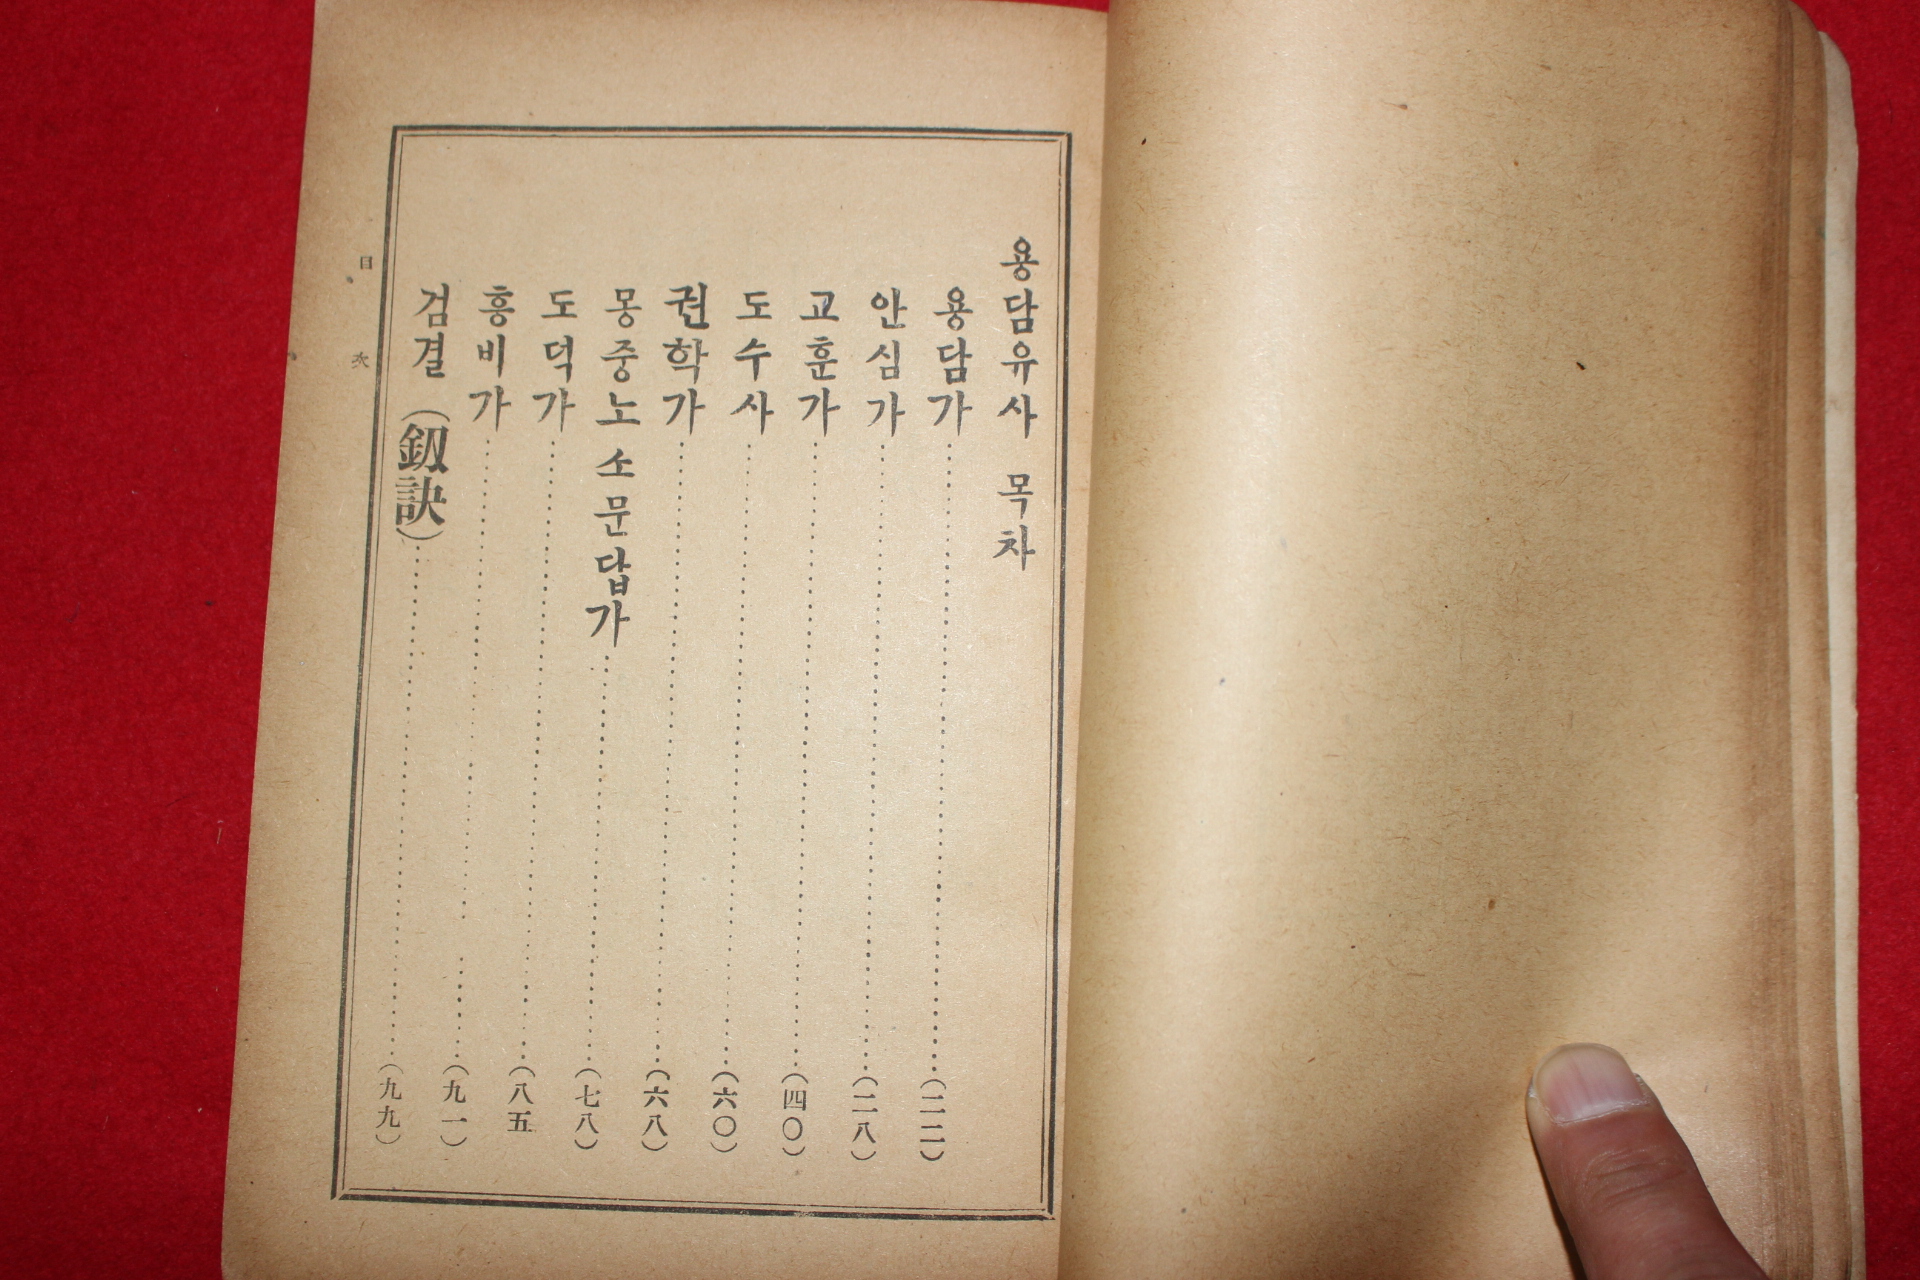 용담유사 목차
용담가 (二二)
안심가 (二八)
교훈가 (四〇)
도수사 (六〇)
권학가 (六八)
몽중노소문답가 (七八)
도덕가 (八五
흥비가 (九一)
검결 (釼訣) (九九)
目 次